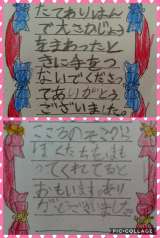 たてわりはん
で大さがしょう
をまわったと
きに手をつ
ないでくださっ
てありがとう
ございました。
こころのそこから
ぼくたちをまも
ってくれてると
おもいます。あり
がとうございました。
PIC•COLLAGE